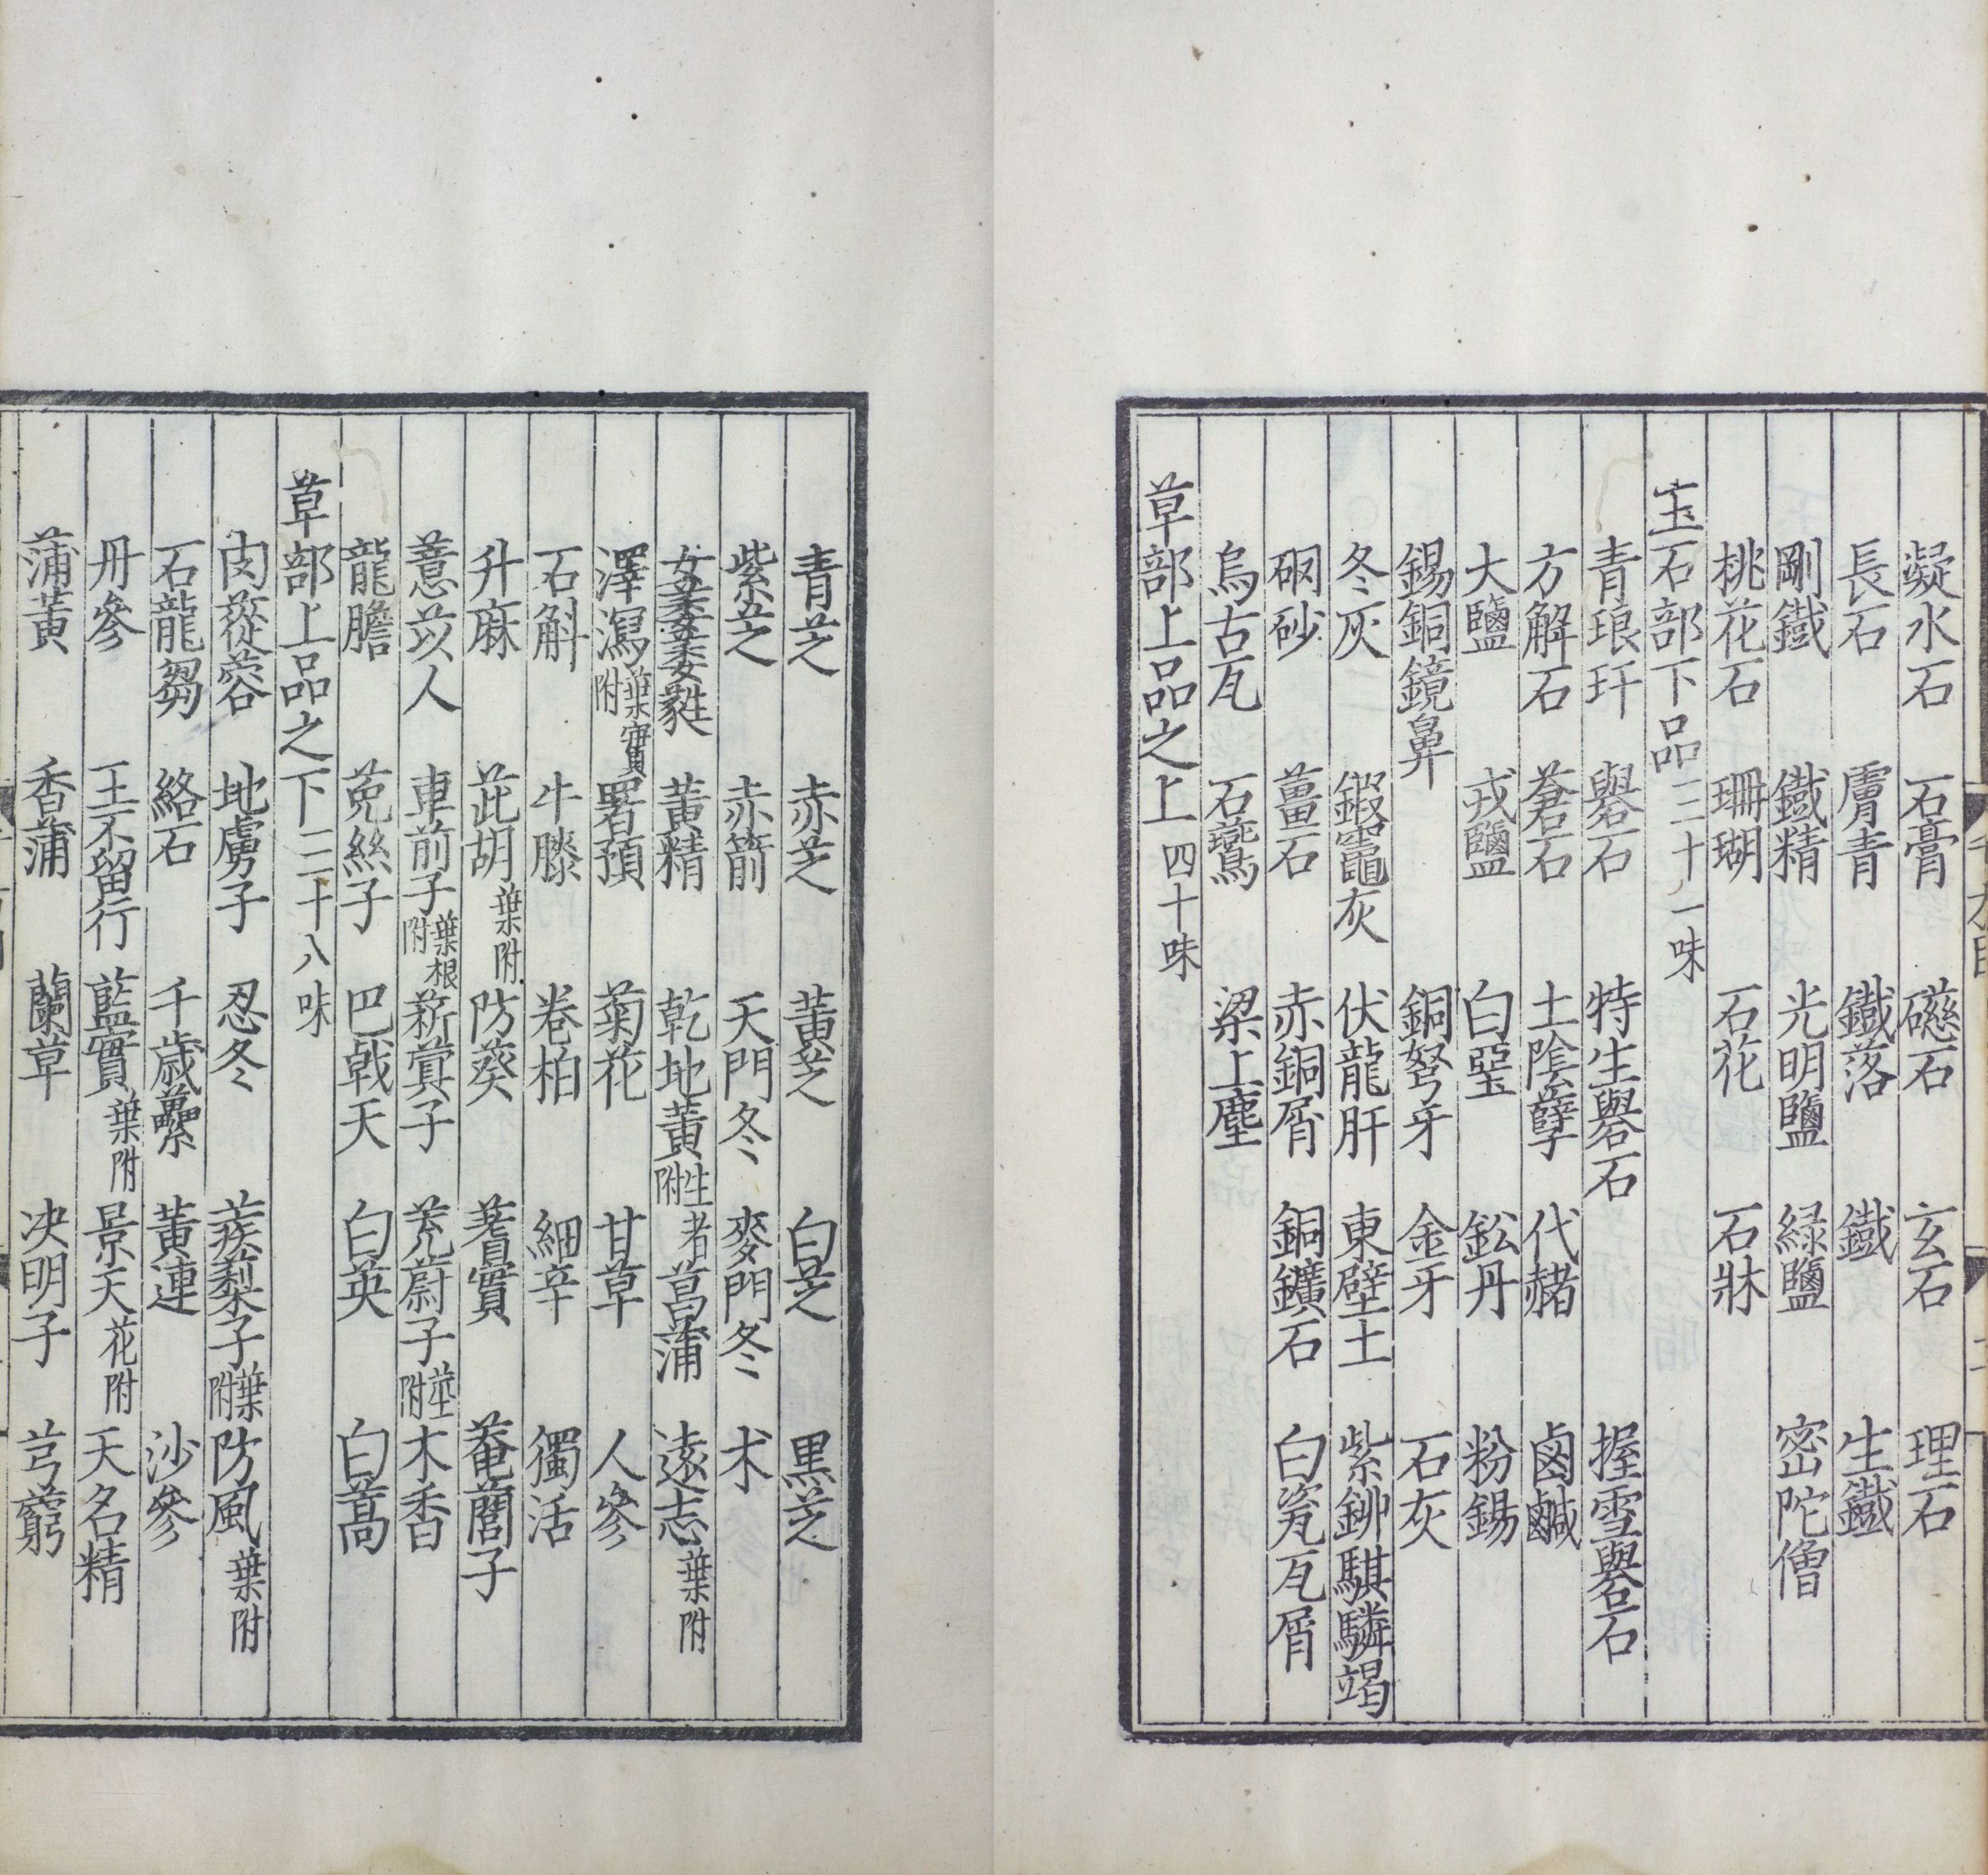 凝水石 石膏 礠石 玄石 理石
長石 膚青 鐵落 鐵 生鐵
剛鐵 鐵精 光明鹽 緑鹽 密陀僧
桃花石 珊瑚 石花 石牀
玉石部下品三十一味
青琅玕 礜石 特生礜石 握雪礜石
方解石 蒼石 土隂孽 代赭 鹵鹹
大鹽 戎鹽 白堊 鈆丹 粉錫
錫銅鏡鼻 銅弩牙 金牙 石灰
冬灰 鍜竈灰 伏龍肝 東壁土 紫鉚騏驎竭
硇砂 薑石 赤銅屑 銅鑛石 白瓷瓦屑
烏古瓦 石鷰 梁上塵
草部上品之上四十味
青芝 赤芝 黃芝 白芝 黑芝
紫芝 赤箭 天門冬 麥門冬 术
女萎萎蕤 黃精 乾地黃生者附 菖蒲 遠志葉附
澤瀉葉實附 署預 菊花 甘草 人參
石斛 牛膝 卷柏 細辛 獨活
升麻 茈胡葉附 防葵 蓍實 菴䕡子
薏苡人 車前子葉根附 菥蓂子 茺蔚子莖附 木香
龍膽 菟絲子 巴戟天 白英 白蒿
草部上品之下三十八味
肉蓯蓉 地膚子 忍冬 蒺䔧子葉附 防風葉附
石龍芻 絡石 千歳虆 黃連 沙參
丹參 王不留行 藍實葉附 景天花附 天名精
蒲黃 香蒲 蘭草 决明子 芎藭